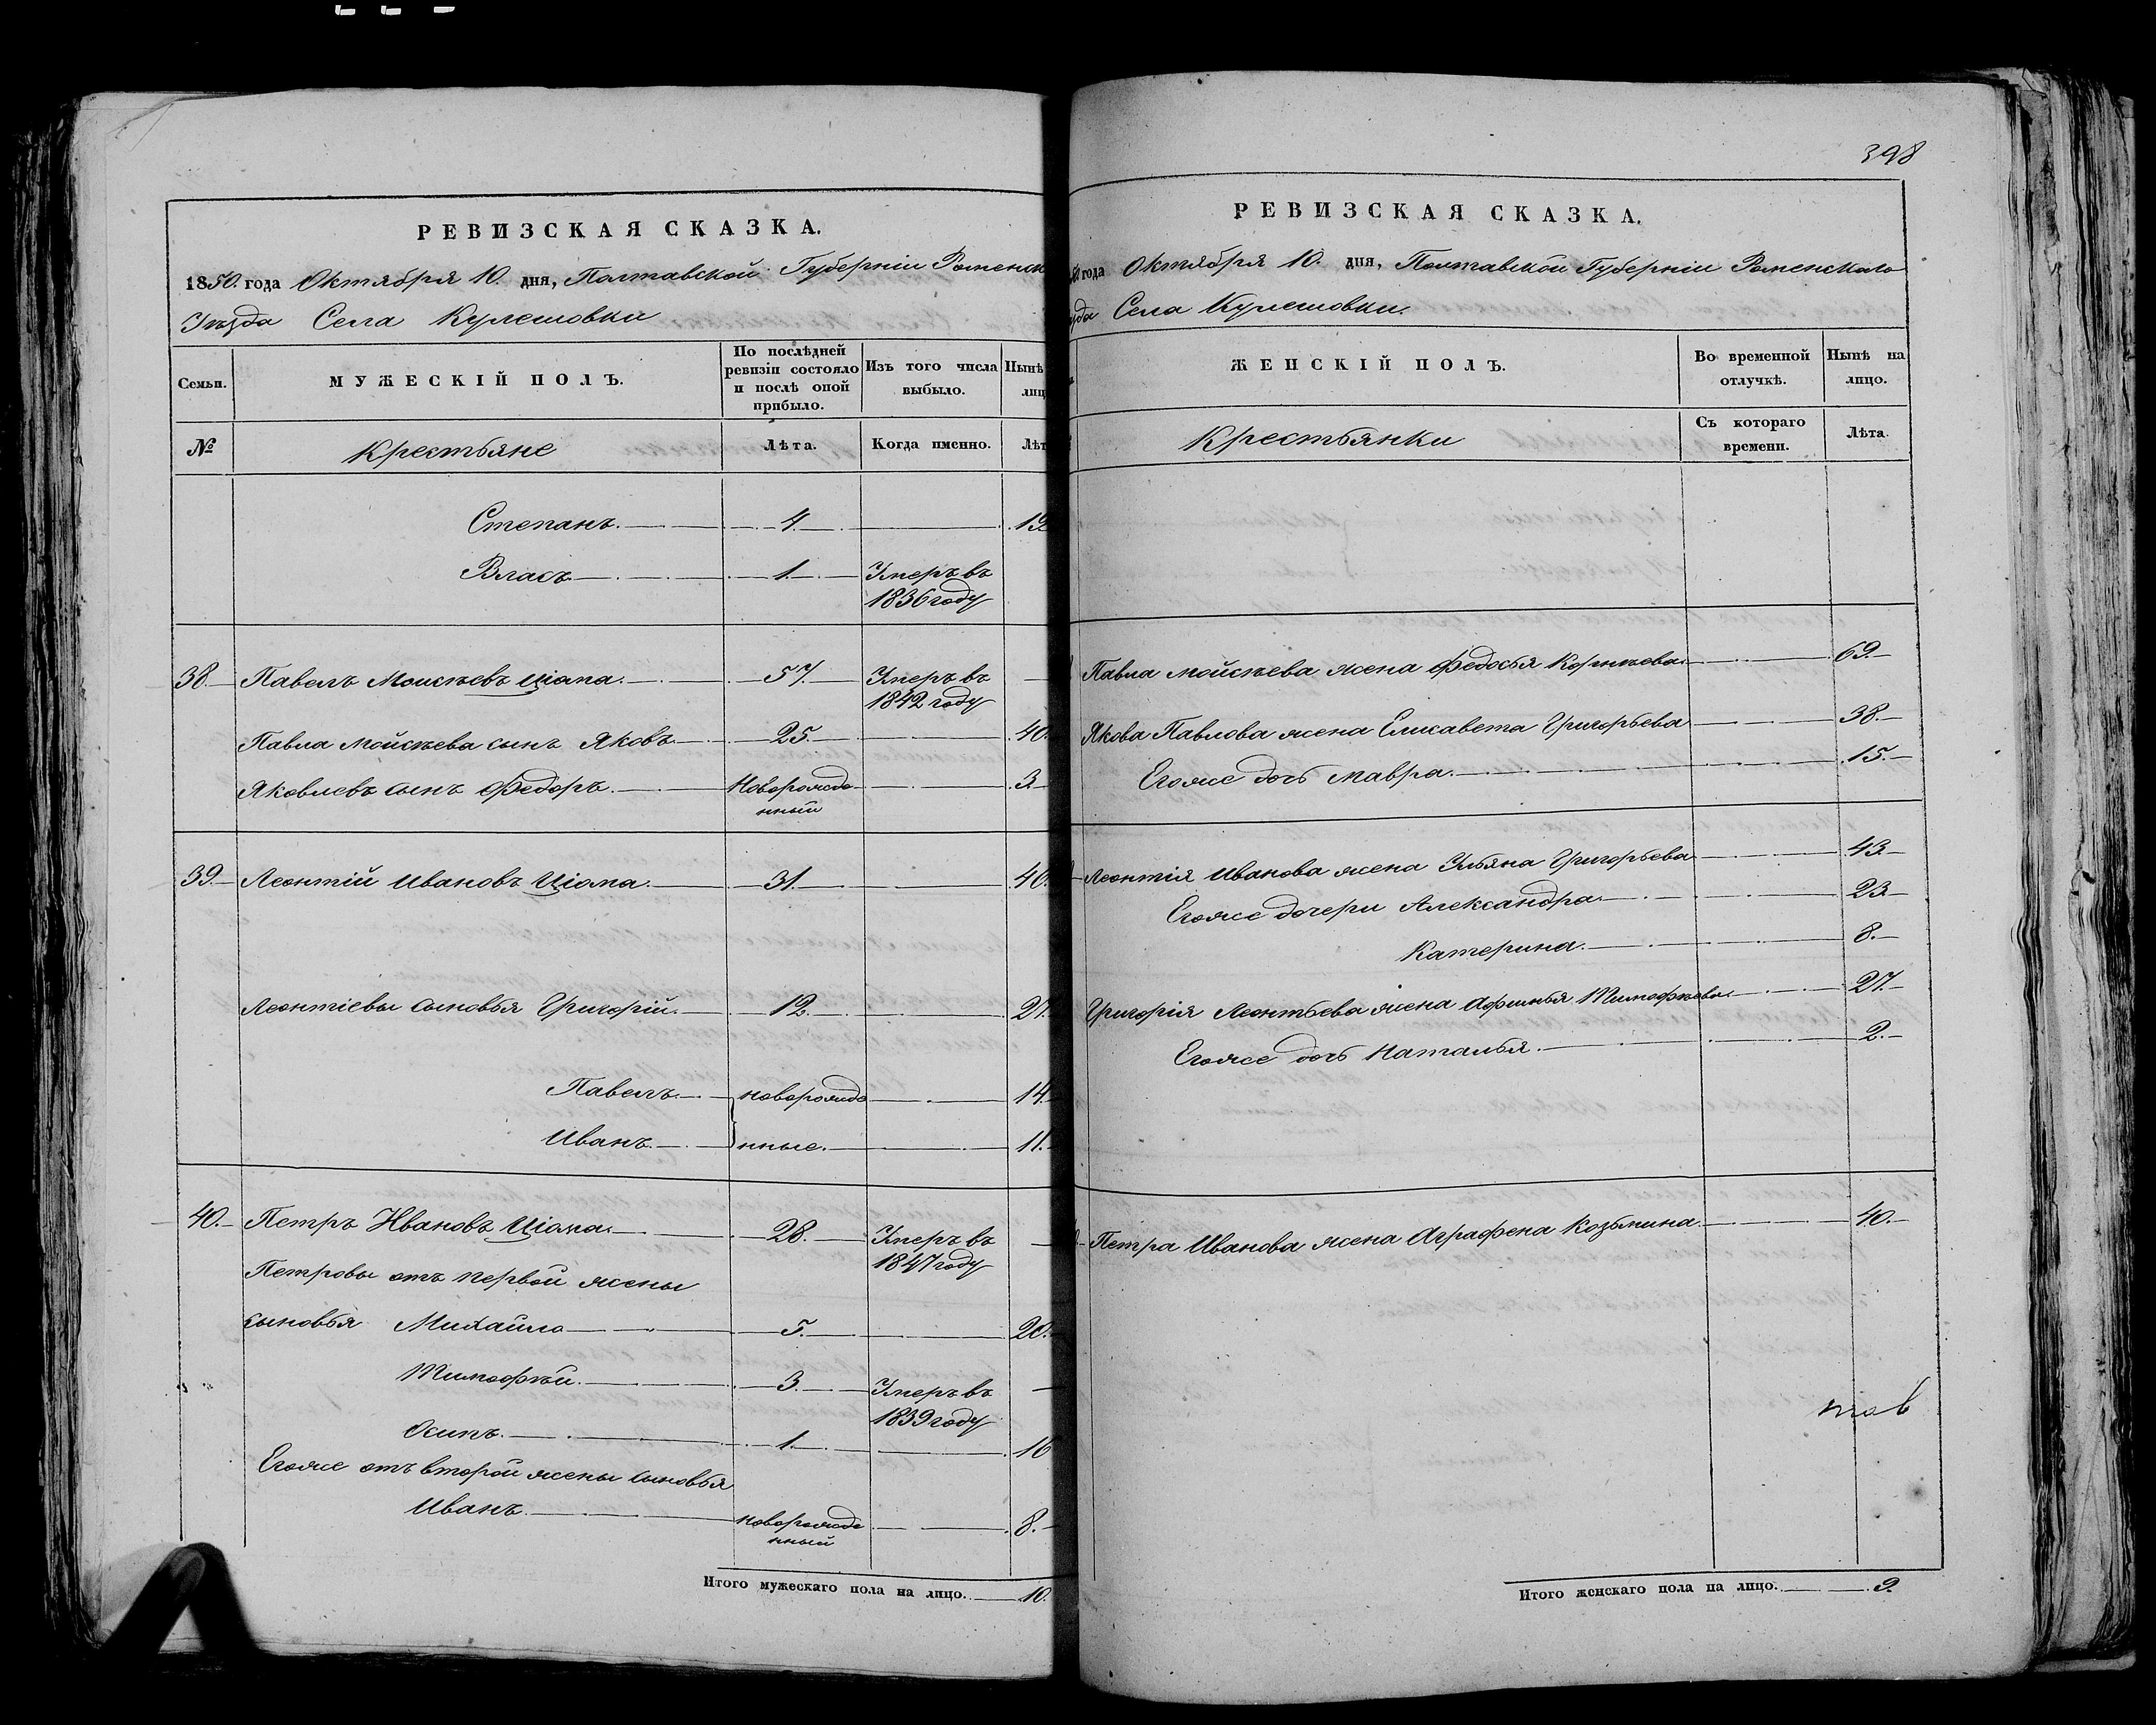 РЕВИЗСКАЯ СКАЗКА.
1850. года Октября 10. дня, Полтавской Губерніи Роменск
Уѣзда Села Кулешовки
Семьи.
МУЖЕСКІЙ ПОЛЪ.
По послѣдней
ревизіи состояло
и послѣ оной
прибыло.
Изъ того числа
выбыло.
Нынѣ
лиц
№
Крестьяне
Лѣта.
Когда именно.
Лѣт
Степанъ. 4. 19
Власъ. 1. Умеръ въ
1836 году
38. Павелъ Моисѣевъ Ціома. 57. Умеръ въ
1842 году
Павла Мойсѣева сынъ Яковъ. 25. 40.
Яковлевъ сынъ Федоръ. Новорожде
нный 3
39. Леонтій Ивановъ Ціома. 31. 46.
Леонтіевы сыновья Григорій. 12. 27.
Павелъ. новорожде 14.
Иванъ. нные. 11.
40. Петръ Ивановъ Ціома. 28. Умеръ въ
1847 году
Петровы отъ первой жены
сыновья Михайло 5. 20.
Тимофѣй. 3. Умеръ въ
1839 году
Осипъ. 1. 16
Егоже отъ второй жены сыновья
Иванъ. новорожде
нный 8.
Итого мужескаго пола на лицо. 10.
398
РЕВИЗСКАЯ СКАЗКА.
года Октября 10. дня, Полтавской Губерніи Роменскаго
Села Кулешовки.
ЖЕНСКІЙ ПОЛЪ.
Во временной
отлучкѣ.
Нынѣ на
лицо.
Крестьянки
Съ котораго
времени.
Лѣта.
Павла Мойсѣева жена Федосья Корнѣева. 69.
Якова Павлова жена Елисавета Григорьева 38.
Егоже дочь Мавра. 15.
Леонтія Иванова жена Ульяна Григорьева 43.
Егоже дочери Александра. 23.
Катерина. 8.
Григорія Леонтьева жена Афимья Тимофѣева. 27.
Егоже дочь Наталья. 2.
Петра Иванова жена Аграфена Козьмина. 40.
Итого женскаго пола на лицо. 9.